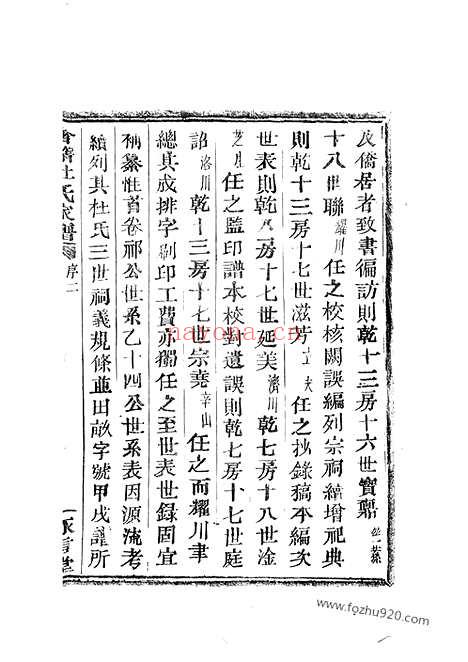 及僑居者致書徧訪則乾十三房十六世寶鼎
十八世聯耀川任之校核闕誤編列宗祠續增祀典
則乾十三房十七世滋芳 任之抄錄稿本編次
世表則乾八房十七世延美濟川乾七房十八世淦
任之監印譜本校對遺誤則乾七房十七世庭
詔洛川乾十三房十七世宗堯 山任之而耀川聿
總其成排字刷印工費亦獨任之至世表世錄固宜
稱纂惟首卷祁公世系乙十四公世系表因源流考
續列其杜氏三世祠義規條並田畝字號甲戌謹所
會稽杜氏家譜 序二
永言堂
nayona.cn
www.fozhu920.com